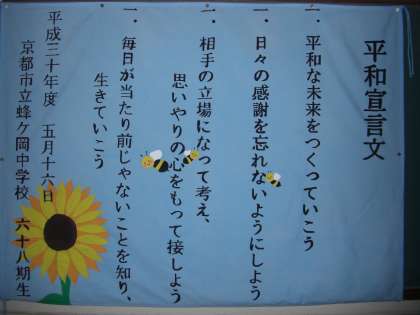 平和宣言文
一．平和な未来をつくっていこう
一．日々の感謝を忘れないようにしよう
一．相手の立場になって考え、
思いやりの心をもって接しよう
一．毎日が当たり前じゃないことを知り、
生きていこう
平成三十年度　五月十六日
京都市立蜂ケ岡中学校　六十八期生